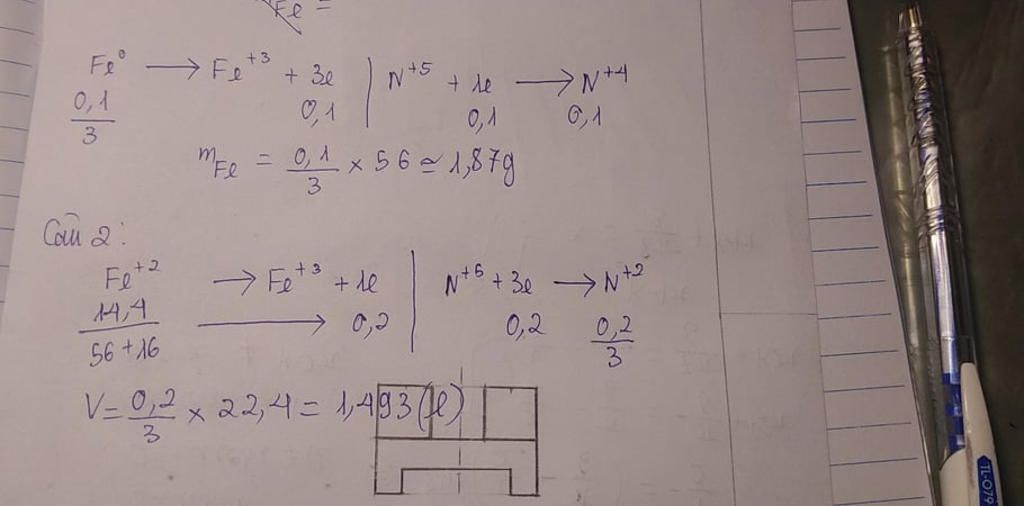 Fe =
Fe⁰ → Fe⁺³ + 3e | N⁺⁵ + 1e → N⁺⁴
0,1/3 0,1 0,1 0,1
mFe = 0,1/3 × 56 ≃ 1,87g
Câu 2:
Fe⁺² → Fe⁺³ + 1e | N⁺⁵ + 3e → N⁺²
14,4/56+16 → 0,2 0,2 0,2/3
V = 0,2/3 × 22,4 = 1,493 (l)
TL-079